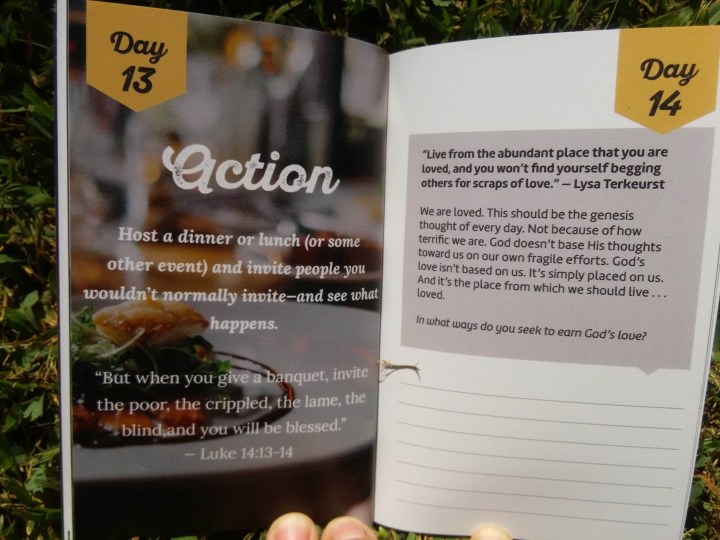 Day
13
Action
Host a dinner or lunch (or some
other event) and invite people you
wouldn't normally invite—and see what
happens.
"But when you give a banquet, invite
the poor, the crippled, the lame, the
blind,and you will be blessed."
— Luke 14:13-14
Day
14
"Live from the abundant place that you are
loved, and you won't find yourself begging
others for scraps of love." — Lysa Terkeurst
We are loved. This should be the genesis
thought of every day. Not because of how
terrific we are. God doesn't base His thoughts
toward us on our own fragile efforts. God's
love isn't based on us. It's simply placed on us.
And it's the place from which we should live . . .
loved.
In what ways do you seek to earn God's love?